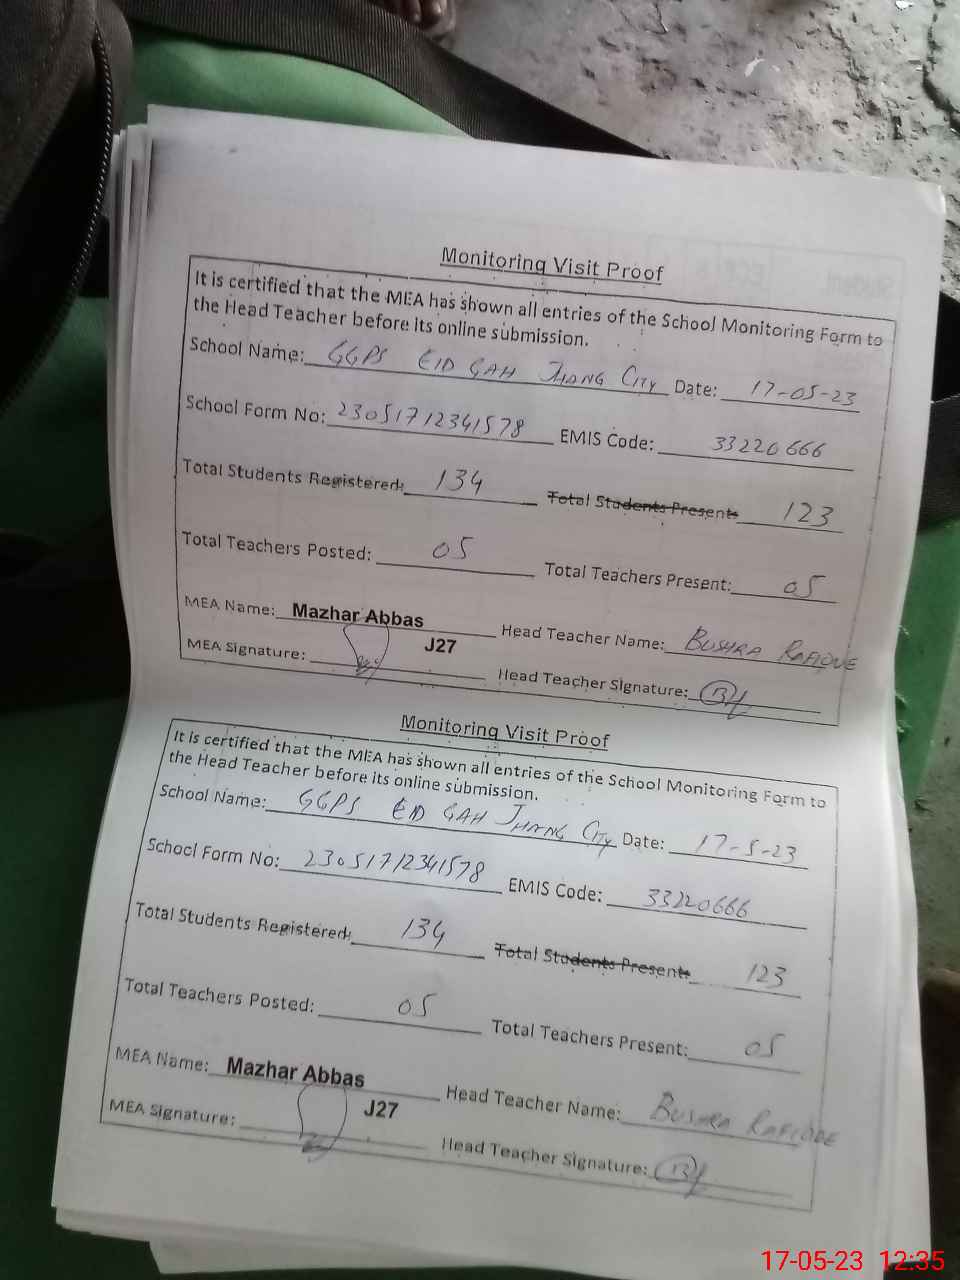 Monitoring Visit Proof
It is certified that the MEA has shown all entries of the School Monitoring Form to
the Head Teacher before its online submission.
School Name: GGPS EID GAH JHANG CITY Date: 17-05-23
School Form No: 23051712341578 EMIS Code: 33220666
Total Students Registered: 134 Total Students Present: 123
Total Teachers Posted: 05 Total Teachers Present: 05
MEA Name: Mazhar Abbas Head Teacher Name: BUSHRA RAFIQUE
J27
MEA Signature: Head Teacher Signature:
Monitoring Visit Proof
It is certified that the MEA has shown all entries of the School Monitoring Form to
the Head Teacher before its online submission.
School Name: GGPS EID GAH JHANG CITY Date: 17-5-23
School Form No: 23051712341578 EMIS Code: 33220666
Total Students Registered: 134 Total Students Present: 123
Total Teachers Posted: 05 Total Teachers Present: 05
MEA Name: Mazhar Abbas Head Teacher Name: BUSHRA RAFIQUE
J27
MEA Signature: Head Teacher Signature:
17-05-23 12:35